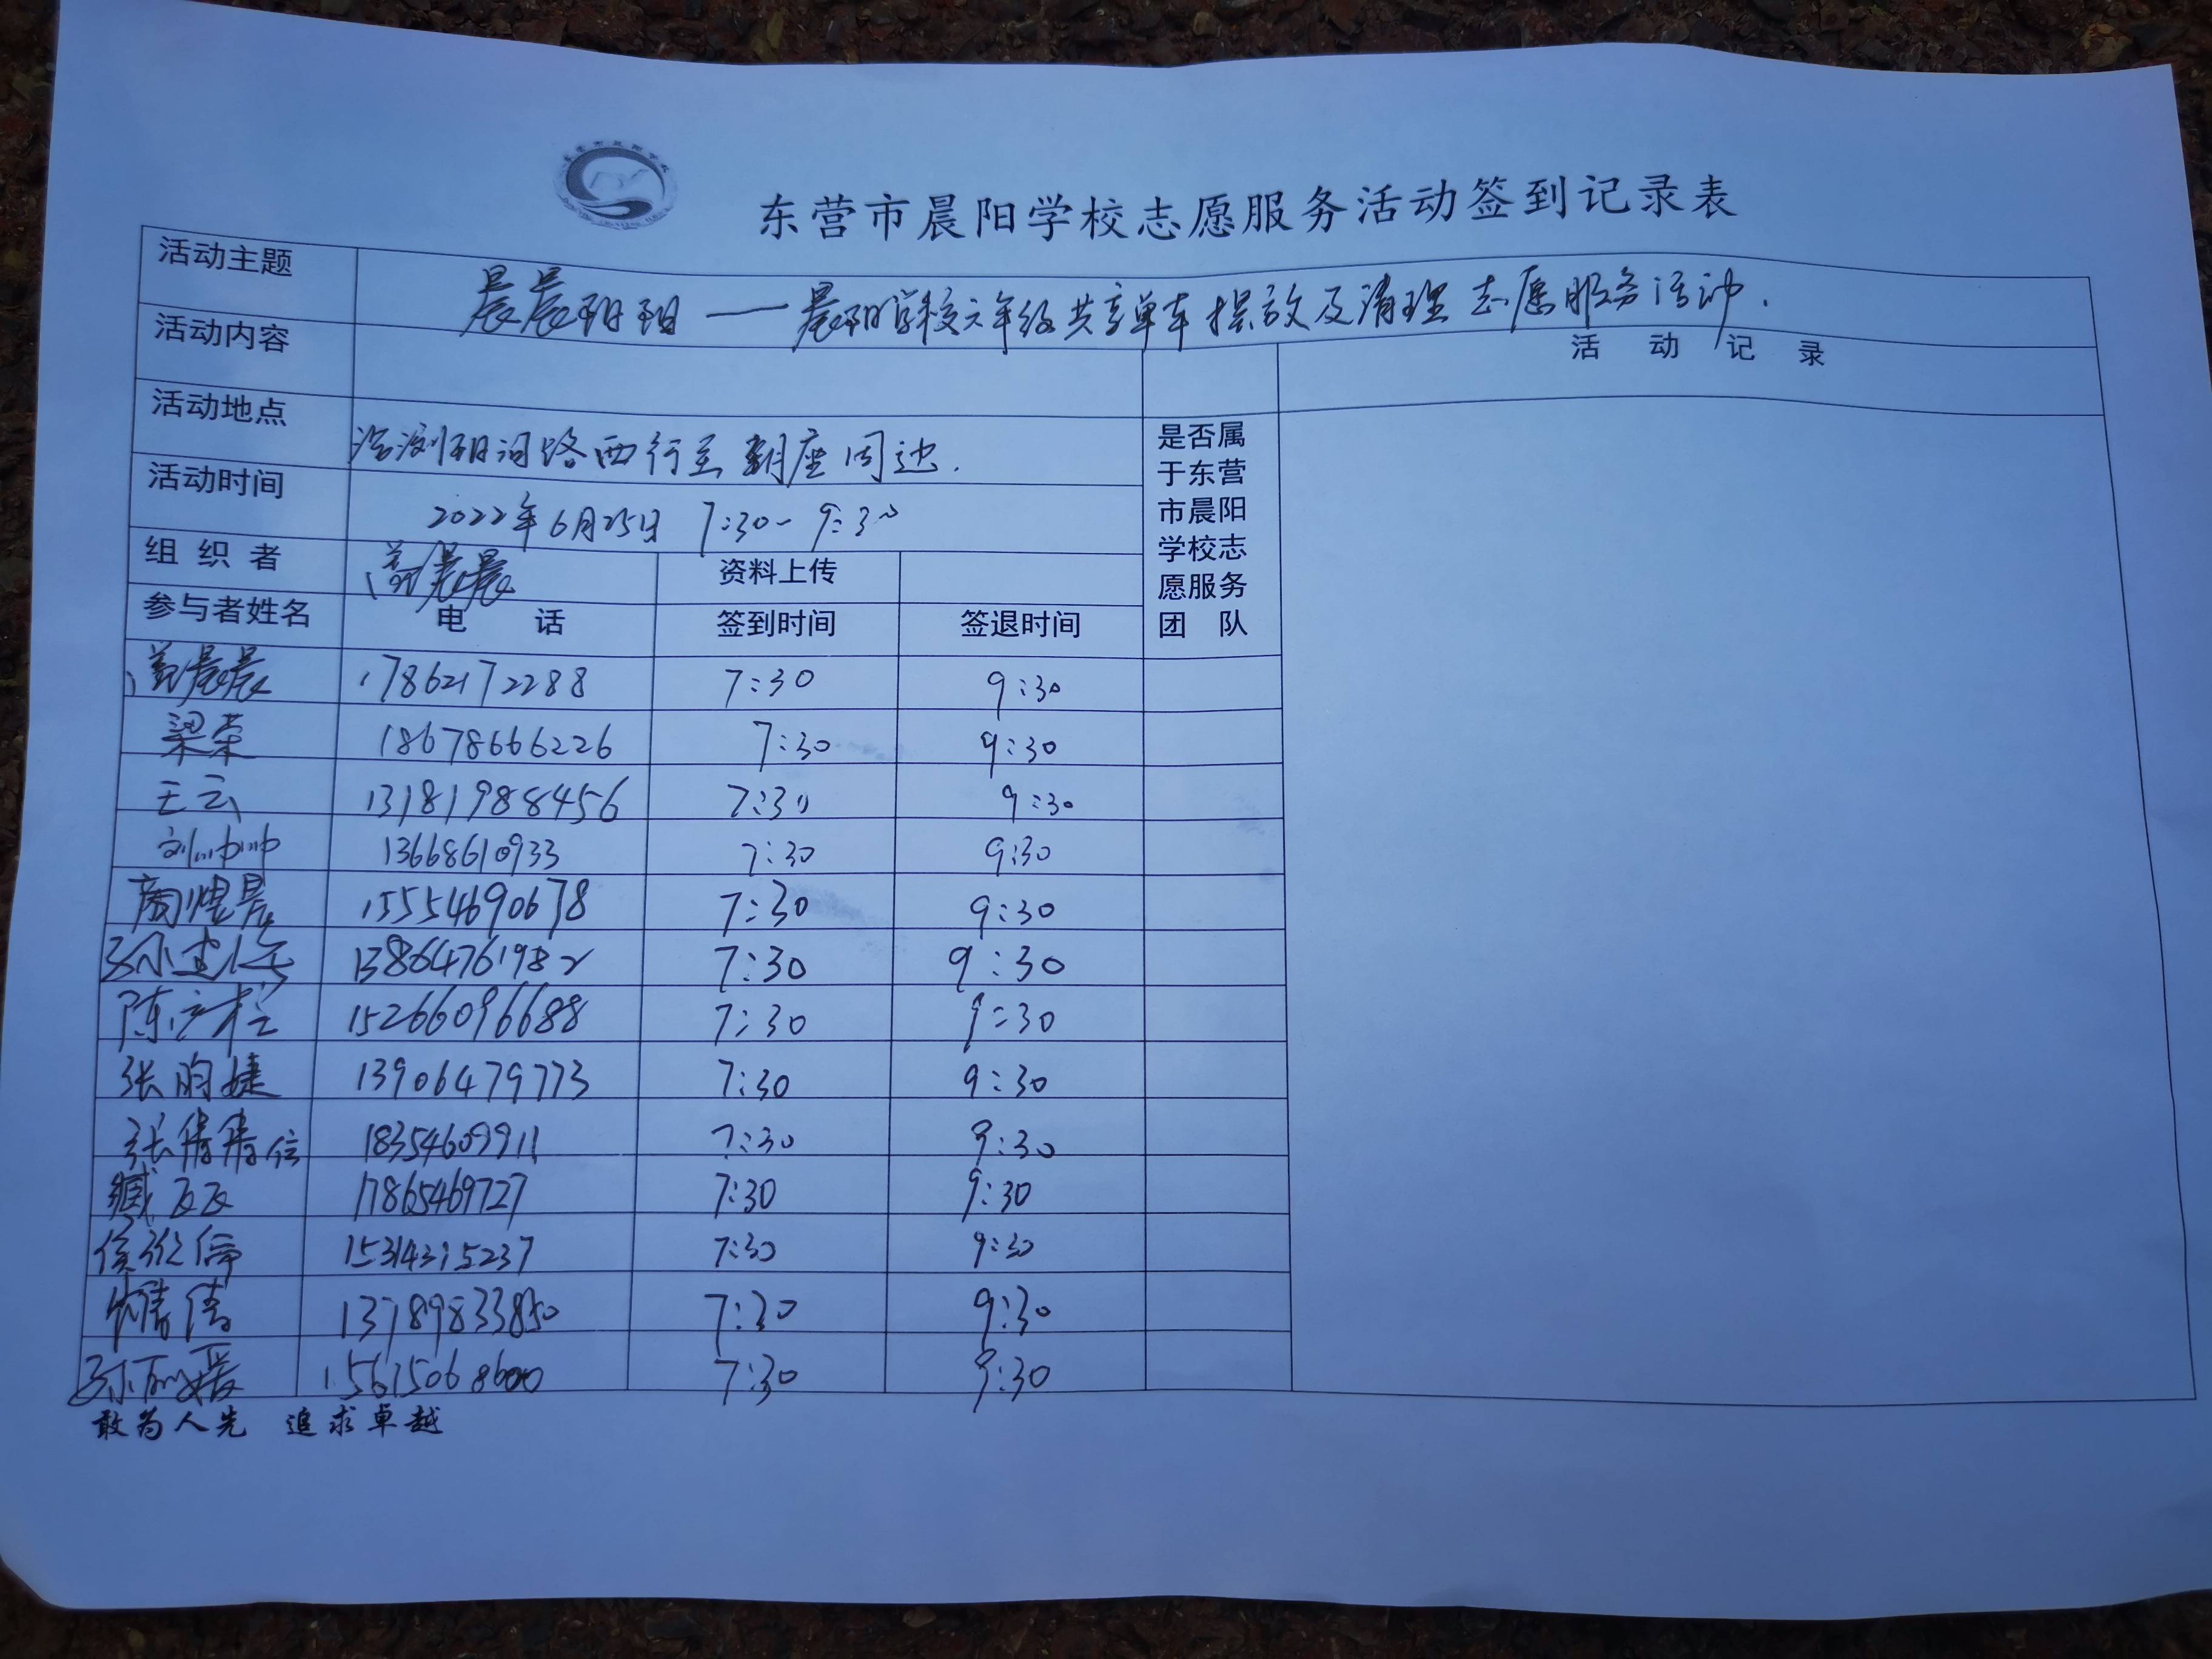 东营市晨阳学校志愿服务活动签到记录表
活动主题 晨晨阳阳——晨阳学校六年级共享单车摆放及清理志愿服务活动.
活动内容 活动记录
活动地点 沿 阳河路西行至 周边.
活动时间 2022年6月25日 7:30-9:30
组织者 晨晨 资料上传
参与者姓名 电话 签到时间 签退时间 是否属于东营市晨阳学校志愿服务团队
晨晨 17862172288 7:30 9:30
梁荣 18678666226 7:30 9:30
王云 13181988456 7:30 9:30
刘帅帅 13668610933 7:30 9:30
周煜晨 15554690678 7:30 9:30
孙建 13864761982 7:30 9:30
陈 15266096688 7:30 9:30
张昀婕 13906479773 7:30 9:30
张倩倩 18354609911 7:30 9:30
臧友友 17865469727 7:30 9:30
侯 15314315237 7:30 9:30
倩 13789833850 7:30 9:30
孙 媛 15615068600 7:30 9:30
敢为人先 追求卓越